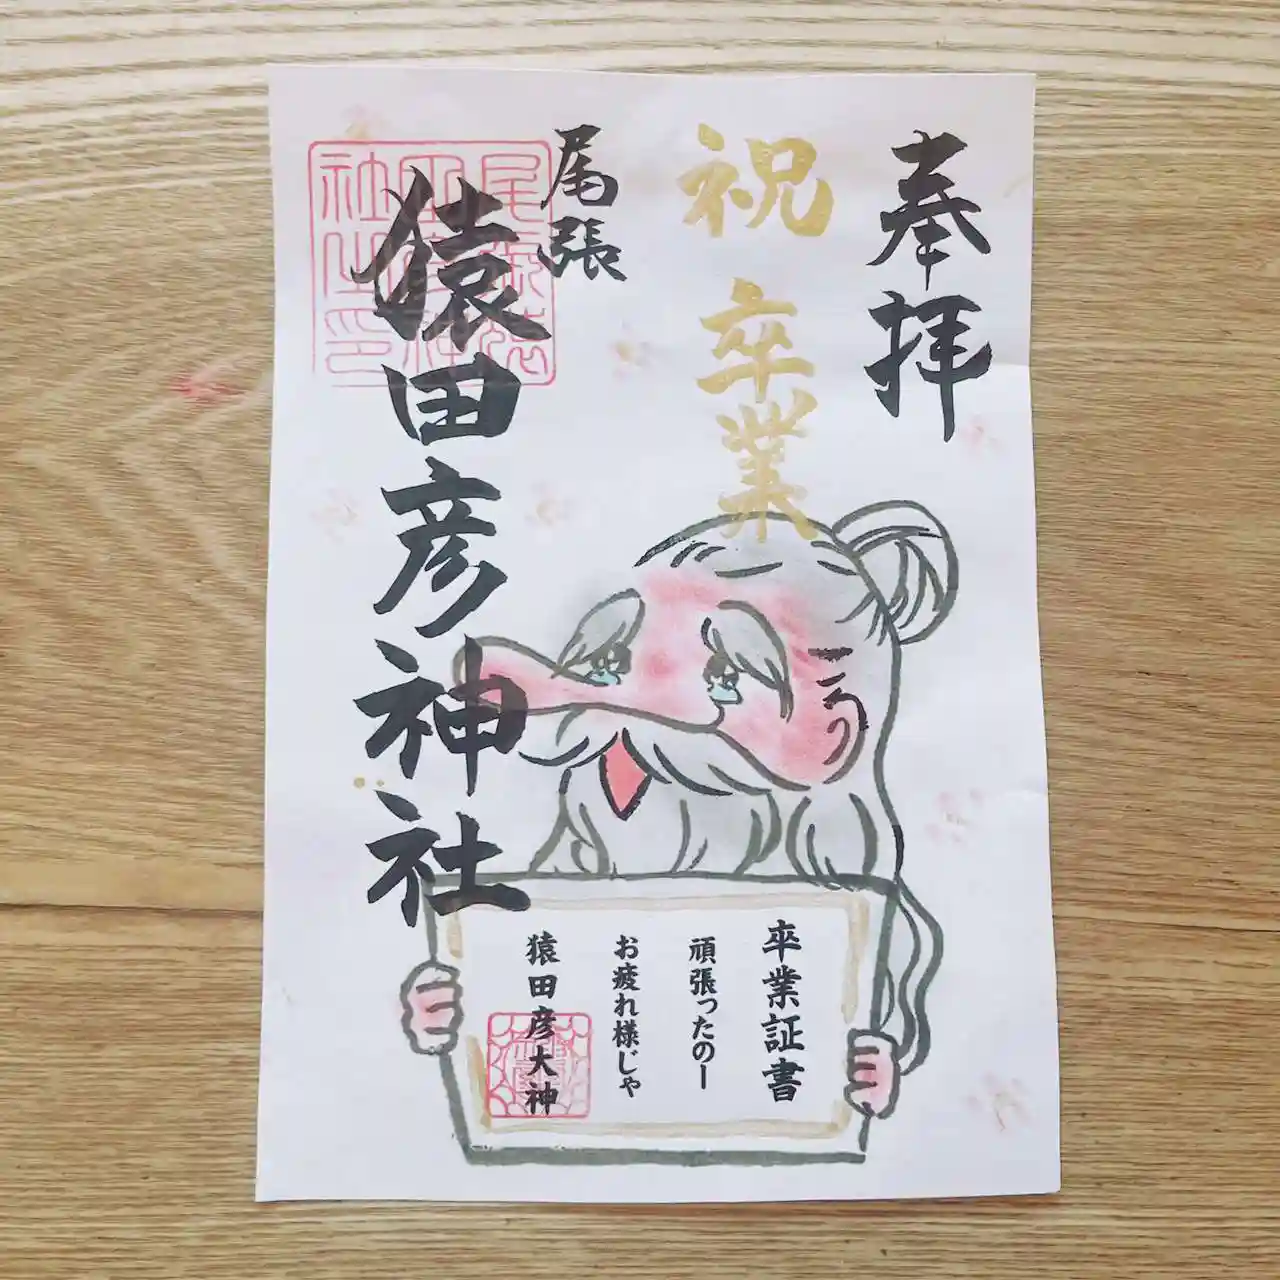 奉拝
祝 卒業
尾張
猿田彦神社
卒業証書
頑張ったのー
お疲れ様じゃ
猿田彦大神